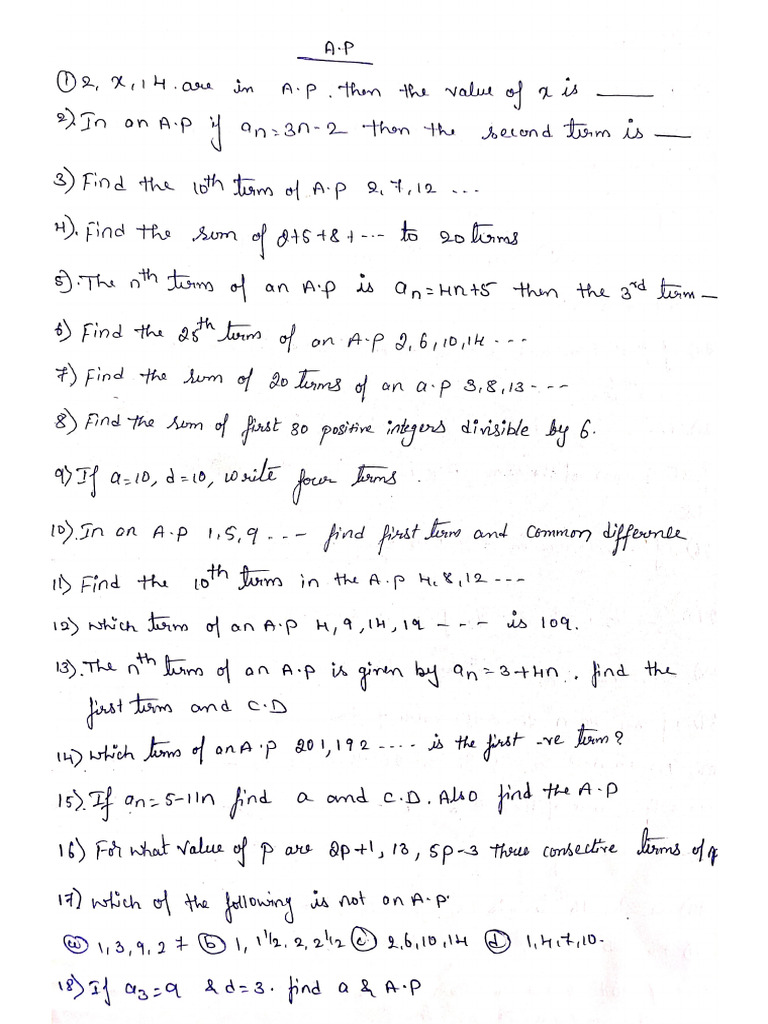 A.P
1) 2, x, 14. are in A.P. then the value of x is ____
2). In an A.P if an=3n-2 then the second term is __
3) Find the 10th term of A.P 2, 7, 12 ...
4). Find the sum of 2+5+8+--- to 20 terms
5). The nth term of an A.P is an=4n+5 then the 3rd term _
6) Find the 25th term of an A.P 2, 6, 10, 14 ---
7) Find the sum of 20 terms of an a.p 3, 8, 13 ---
8) Find the sum of first 30 positive integers divisible by 6.
9) If a=10, d=10, write four terms.
10). In an A.P 1, 5, 9 ... find first term and common difference
11) Find the 10th term in the A.P 4, 8, 12 ---
12) which term of an A.P 4, 9, 14, 19 - - - is 109.
13). The nth term of an A.P is given by an=3+4n. find the
first term and C.D
14) which term of an A.P 201, 192 .... is the first -ve term?
15). If an=5-11n find a and C.D. Also find the A.P
16) For what value of p are 2p+1, 13, 5p-3 three consective terms of
17) which of the following is not an A.P.
a 1, 3, 9, 27 b 1, 1 1/2, 2, 2 1/2 c 2, 6, 10, 14 d 1, 4, 7, 10.
18) If a3=9 & d=3. find a & A.P